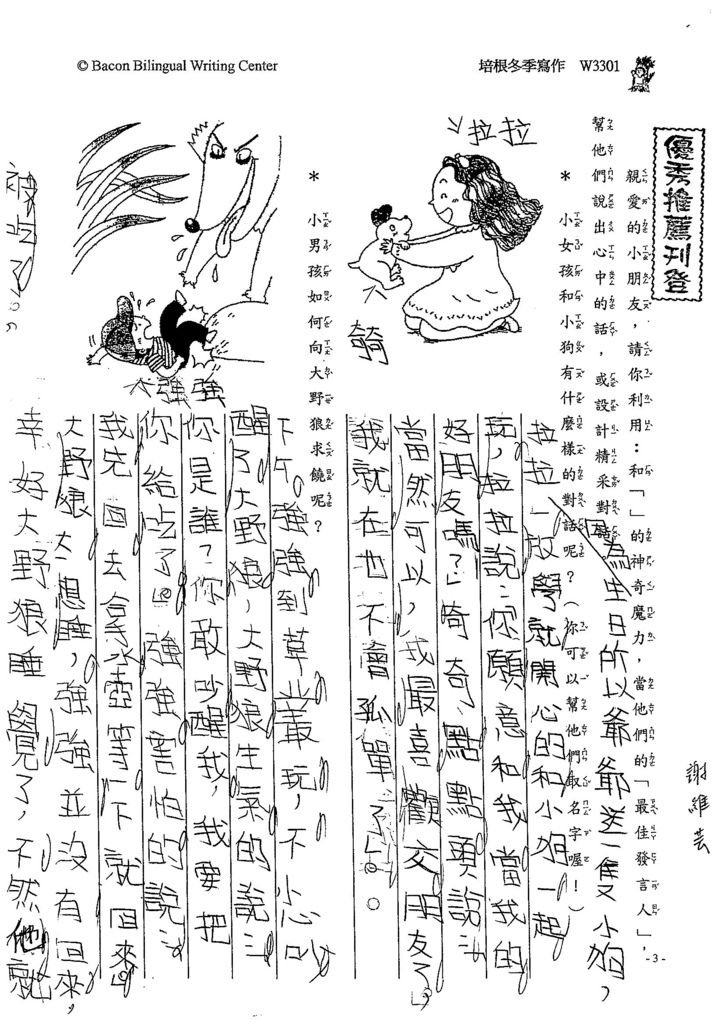 © Bacon Bilingual Writing Center
培根冬季寫作 W3301
優秀推薦刊登
謝維芸
親愛的小朋友，請你利用：和「」的神奇魔力，當他們的「最佳發言人」，
幫他們說出心中的話，或設計精采對話
＊小女孩和小狗有什麼樣的對話呢？（你可以幫他們取名字喔！）
拉拉
奇
因為生日所以爺爺送一隻小狗，
拉拉一放學就開心的和小狗一起
玩，拉拉說：「你願意和我當我的
好朋友嗎？」奇奇點點頭說：「
當然可以，我最喜歡交朋友了」
我就在也不會孤單了」。
＊小男孩如何向大野狼求饒呢？
強強
下午強強到草叢玩，不小心吵
醒了大野狼，大野狼生氣的說：「
你是誰？你敢吵醒我，我要把
你給吃了」強強害怕的說：「
我先回去拿水壺等一下就回來」
大野狼太想睡，強強並沒有回來，
幸好大野狼睡覺了，不然他就
被吃了。
-3-